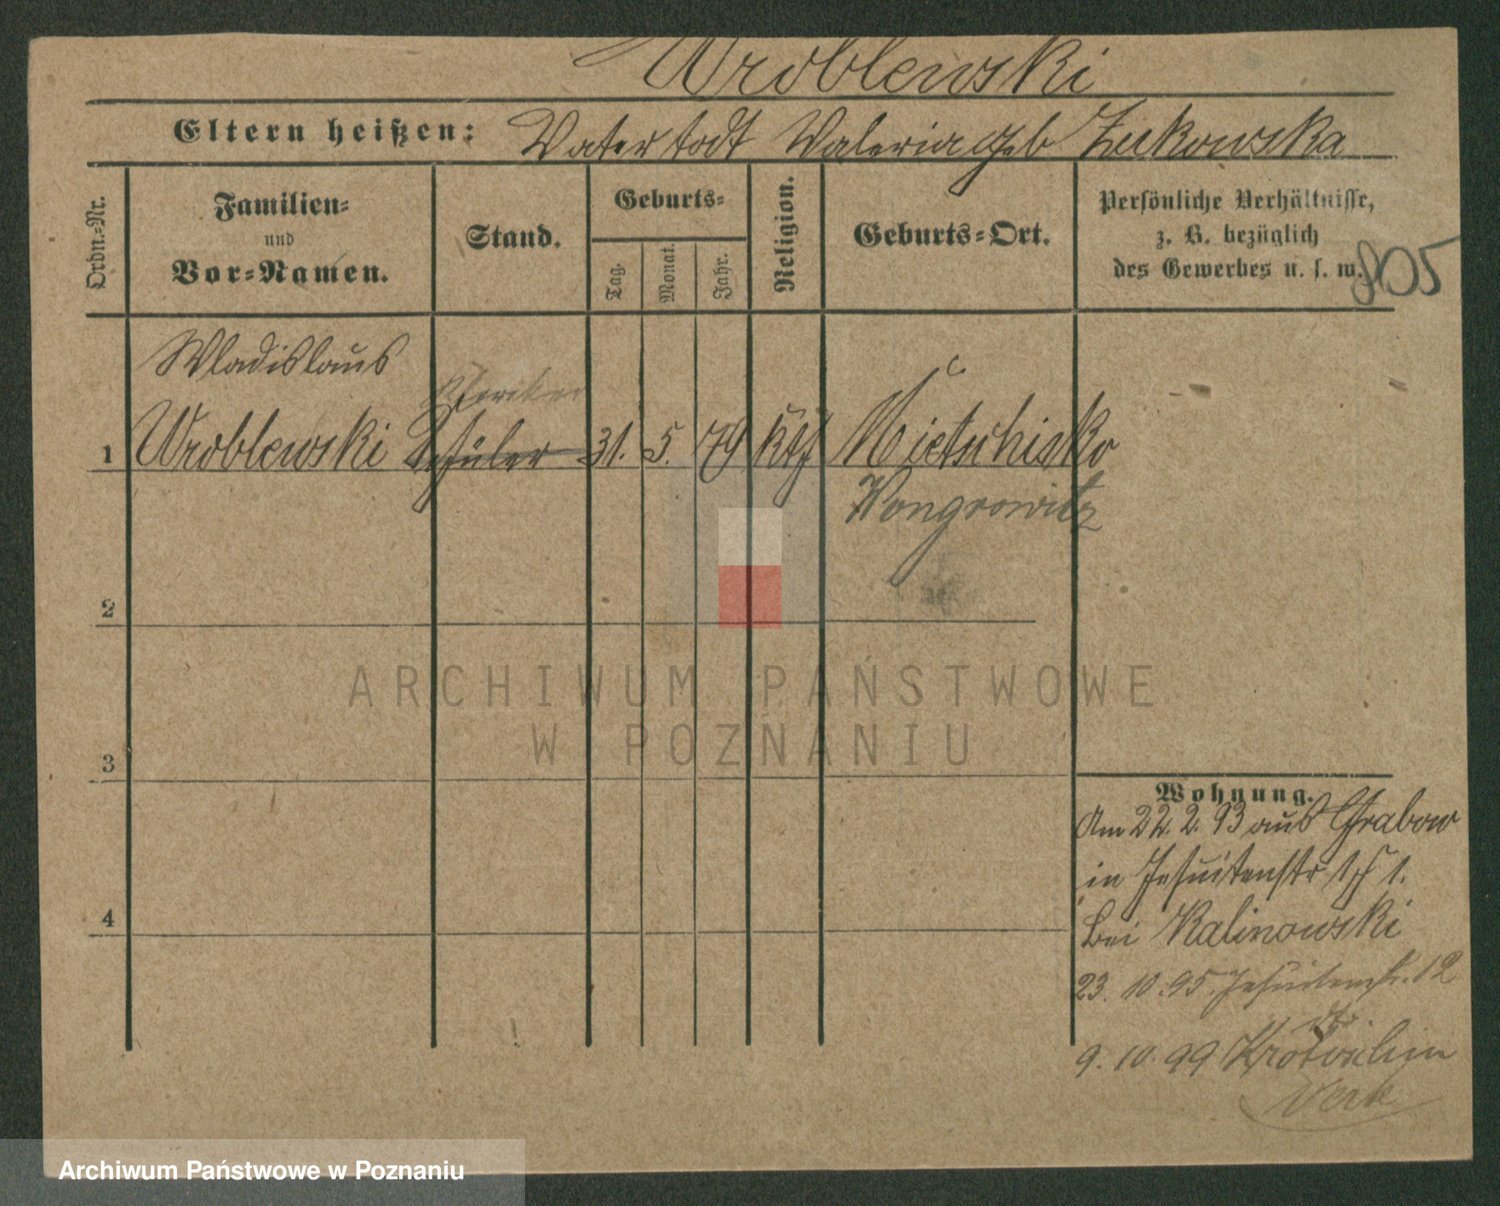 Wroblewski
Eltern heißen: Vater todt Valeria geb Zukowska
Ordn.-Nr.
Familien-
und
Vor-Namen.
Stand.
Geburts-
Tag.
Monat.
Jahr.
Religion.
Geburts-Ort.
Persönliche Verhältnisse,
z. B. bezüglich
des Gewerbes u. s. w.
805
Wladislaus
Kleriker
1 Wroblewski Schüler 31. 5. 79 kth Mietschisko
Wongrowitz
2
ARCHIWUM PAŃSTWOWE
W POZNANIU
3
Wohnung.
Am 22. 2. 93 aus Grabow
in Jesuitenstr 1.
4
bei Kalinowski
23. 10. 95. Jesuitenstr. 12
9. 10. 99 Krotoschin
Archiwum Państwowe w Poznaniu